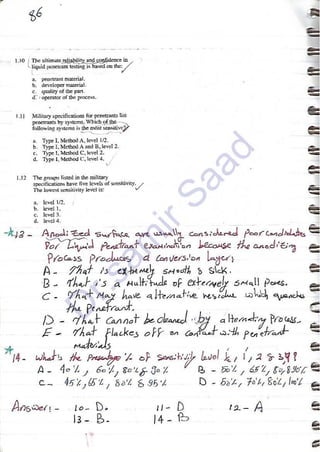 86
1.10 The ultimate reliability and confidence in
liquid penetrant testing is based on the:
a. penetrant material.
b. developer material.
c. quality of the part.
d. operator of the process.
1.11 Military specifications for penetrants list
penetrants by systems. Which of the
following systems is the most sensitive?
a. Type I, Method A, level 1/2.
b. Type I, Method A and B, level 2.
c. Type I, Method C, level 2.
d. Type I, Method C, level 4.
1.12 The groups listed in the military
specifications have five levels of sensitivity.
The lowest sensitivity level is:
a. level 1/2.
b. level 1.
c. level 3.
d. level 4.
13 - Anodized surface are usually considered Poor candidates
For Liquid Penetrant examination because the anodizing
Process Produces a conversion layer;
A - That is extremely smooth & slick.
B - That is a Multitude of extremely small Pores.
C - That May have alternative residue which quenches
the Penetrant.
D - That cannot be cleaned by alternating Process.
E - That flackes off on contact with penetrant
materials
14 - what's the Percentage % of sensitivity level ½, 1, 2 & 3, 4?
A - 40%, 60%, 80% & 90%
B - 50%, 65%, 80, 95%
C - 45%, 65%, 80% & 95%
D - 50%, 70%, 80%, 100%
Answer: - 10 - D. 11 - D 12 - A
13 - B. 14 - B
Samir Saad